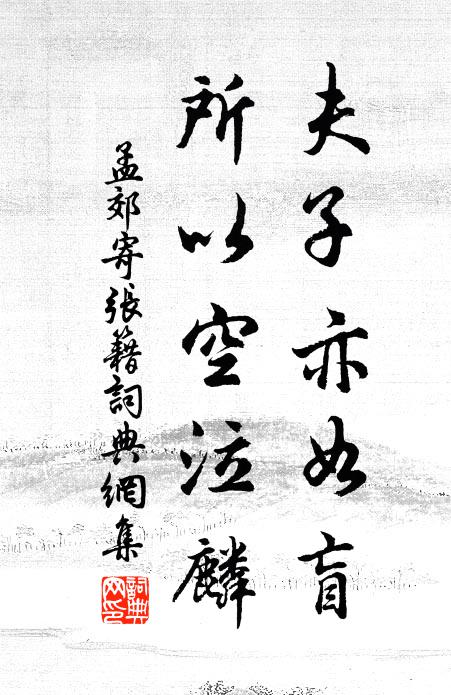 夫子亦如盲
所以空泣麟
孟郊寄張籍詞典網集
詞典網印